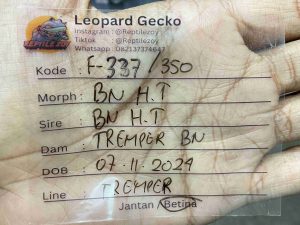 Leopard Gecko
Instagram : @Reptilezoy
Tiktok : @Reptilezoy
Whatsapp : 082137374647
Kode : F-337/350
Morph : BN H.T
Sire : BN H.T
Dam : TREMPER BN
DOB : 07.11.2024
Line : TREMPER
Jantan Betina